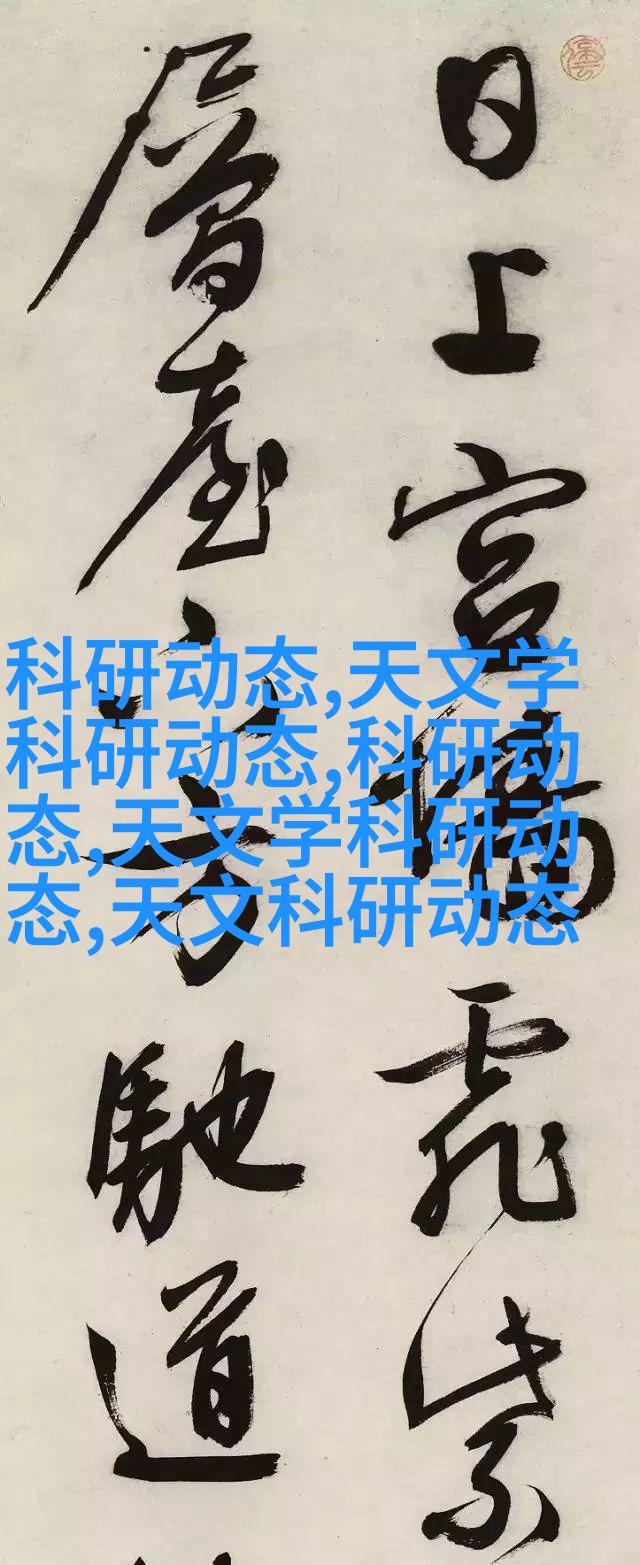 日上宮墻霏紫
層臺下方馳道
科研动态,天文学
科研动态,科研动
态,天文学科研动
态,天文科研动态